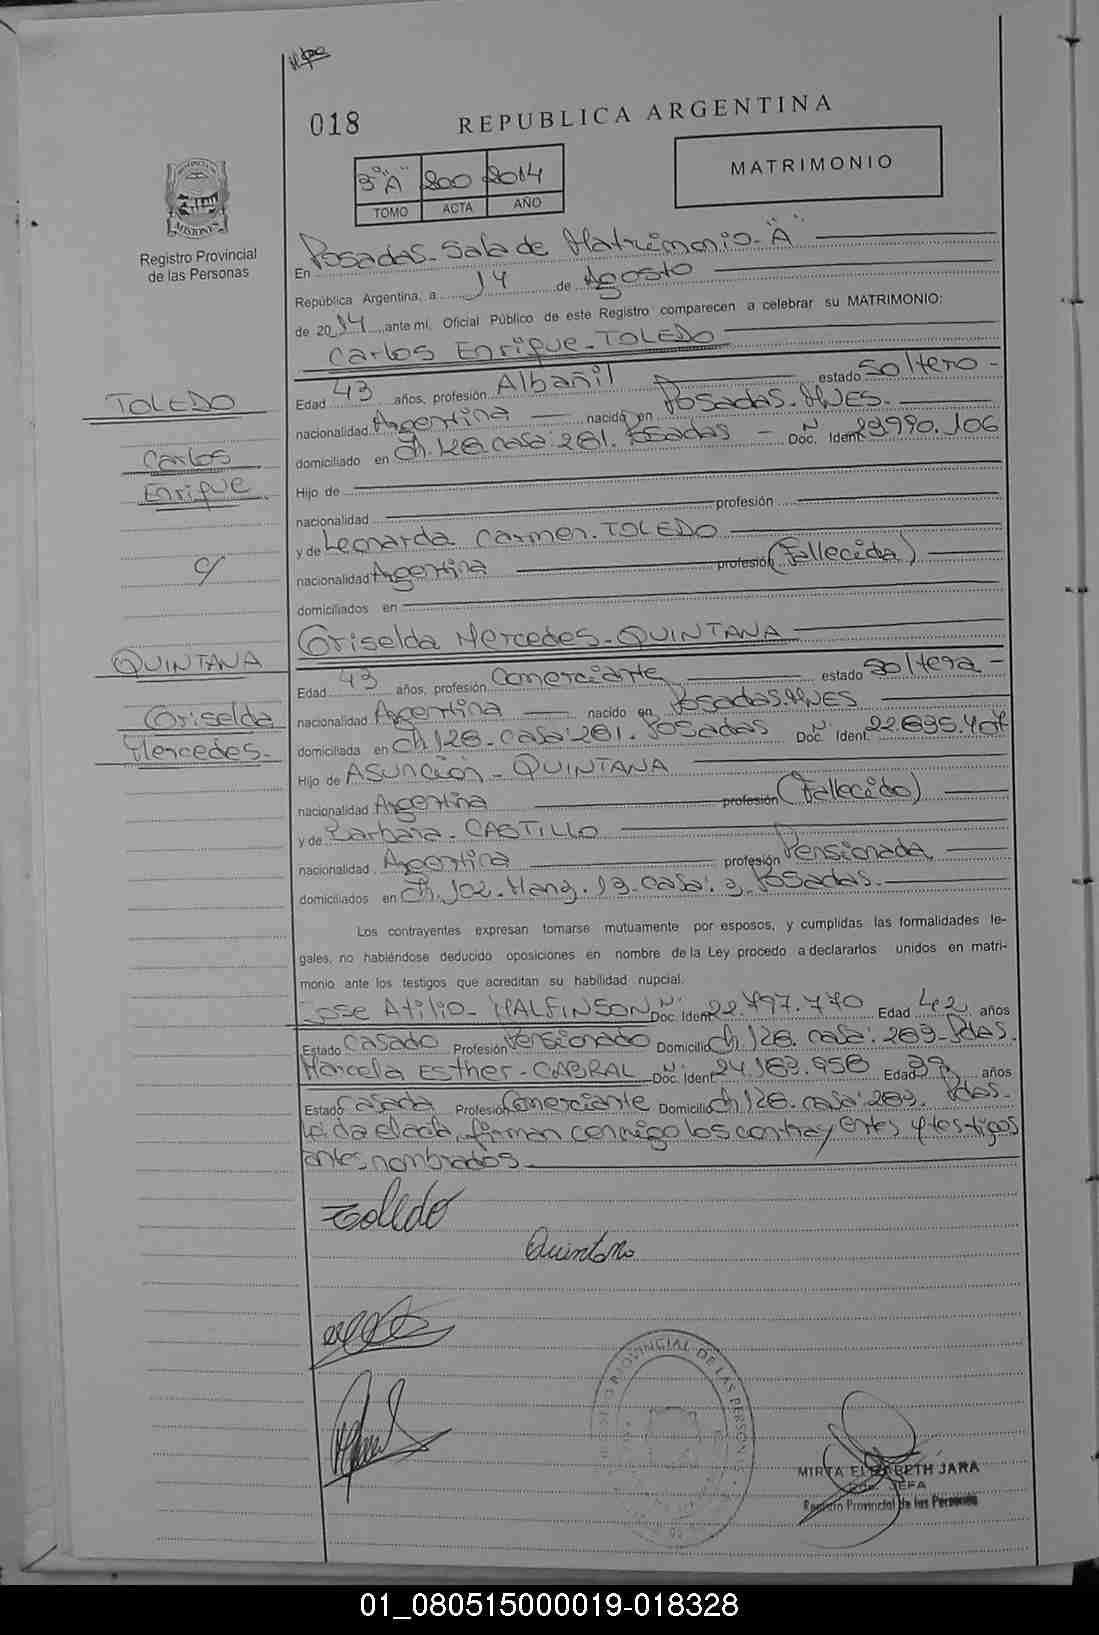 018
REPUBLICA ARGENTINA
MATRIMONIO
3º "A" 200 2014
TOMO ACTA AÑO
PROVINCIA DE
MISIONES
Registro Provincial
de las Personas
En Posadas. Sala de Matrimonio. "A"
República Argentina, a 14 de Agosto
de 2014 ante mí, Oficial Público de este Registro comparecen a celebrar su MATRIMONIO:
Carlos Enrique. TOLEDO
TOLEDO
Carlos
Enrique
Edad 43 años, profesión Albañil estado Soltero
nacionalidad Argentina nacido en Posadas. MNES.
domiciliado en Ch. 126. casa: 261. Posadas Doc. Ident. Nº 23990.106
Hijo de
nacionalidad profesión
y de Leonarda Carmen. TOLEDO
c/
nacionalidad Argentina profesión (Fallecida)
domiciliados en
Griselda Mercedes. QUINTANA
QUINTANA
Griselda
Mercedes.
Edad 43 años, profesión Comerciante estado Soltera
nacionalidad Argentina nacido en Posadas. MNES
domiciliada en Ch. 126. casa: 261. Posadas Doc. Ident. Nº
Hijo de Asunción. QUINTANA
nacionalidad Argentina profesión (Fallecido)
y de Barbara. CASTILLO
nacionalidad Argentina profesión Pensionada
domiciliados en Ch. 102. Manz. 13. casa: 3. Posadas.
Los contrayentes expresan tomarse mutuamente por esposos, y cumplidas las formalidades le-
gales, no habiéndose deducido oposiciones en nombre de la Ley procedo a declararlos unidos en matri-
monio ante los testigos que acreditan su habilidad nupcial.
Jose Atilio. HALFINSON Doc. Ident. Nº 22.797.770 Edad 42 años
Estado Casado Profesión Pensionado Domicilio Ch. 126. casa: 269. Pdas.
Marcela Esther. CABRAL Doc. Ident. Nº 24.163.956 Edad 39 años
Estado Casada Profesión Comerciante Domicilio Ch. 126. casa: 269. Pdas.
Leida el acta, firman conmigo los contrayentes y testigos
antes nombrados.
Toledo
Quintana
REGISTRO PROVINCIAL DE LAS PERSONAS
MIRTA ELIZABETH JARA
JEFA
Registro Provincial de las Personas
01_080515000019-018328